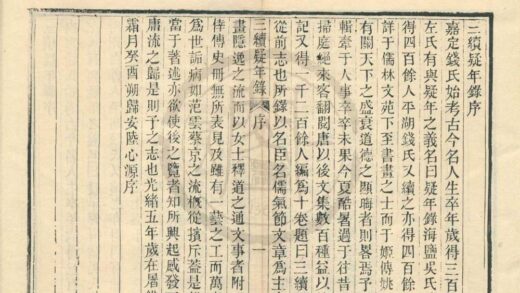 三續疑年錄序
嘉定錢氏始考古今名人生卒年歲得三百
左氏有與疑年之義名曰疑年錄海鹽吳氏
得四百餘人平湖錢氏又續之亦得四百餘
詳于儒林文苑下至書畫之士而于姬傳姚
有關天下之盛衰道德之顯晦者則畧焉予
輯牽于人事卒卒未果今夏酷暑過于往昔
掃庭絕來客翻閱唐以後文集數百種益以
記又得一千二百餘人編爲十卷題曰三續
從前志也所錄以名臣名儒氣節文章爲主
三續疑年錄 序 一
畫隱逸之流而以女士釋道之通文事者附
倖傳史冊無所表見及雖有一藝之工而萬
爲世詬病如范雲蔡京之流槪從擯斥蓋是
當于著述亦欲使後之覽者知所興起感發
庸流之歸是則予之志也光緒五年歲在屠
霜月癸酉朔歸安陸心源序